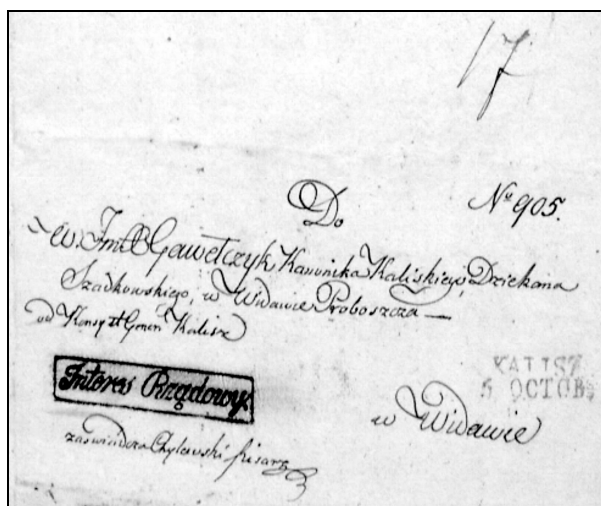 17
Do
No 905.
Gawełczyk Kanonika Kaliskiego, Dziekana
Szadkowskiego, w Widawie Proboszcza —
od Kalisz
Interes Rządowy.
KALISZ
5 OCTOB
w Widawie
zaświadcza Chylewski pisarz